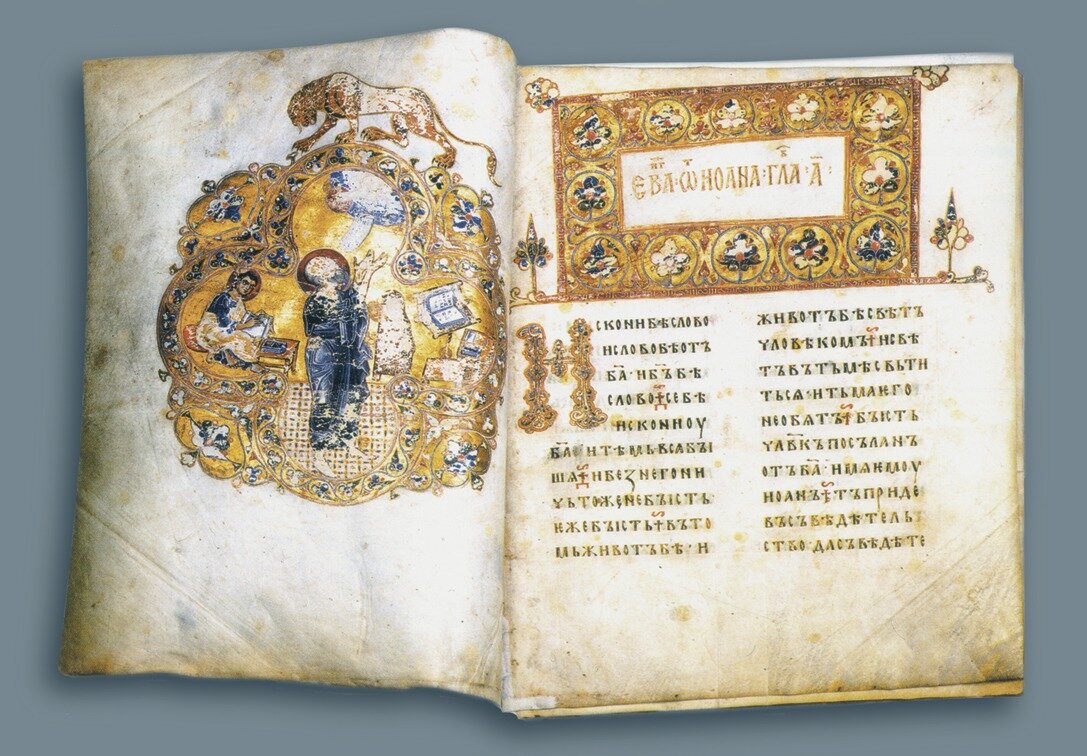 ЕВА·Ѡ ИОАНА·ГЛА·А·
ИСКОНИБѢСЛОВО
ИСЛОВОБѢОТЪ
БА·ИБЪБѢ
СЛОВО·СЕБѢ
ИСКОНИОУ
БАИТѢМЬВСАБЫ
ША·ИБЕЗНЕГОНИ
ЧЬТОЖЕНЕБЫСТЬ
ЕЖЕБЫСТЬ·ВЪТО
МЬЖИВОТЪБѢ·И
ЖИВОТЪБѢСВѢТЪ
ЧЛОВѢКОМЪ·ИСВѢ
ТЪВЪТЬМѢСВЬТИ
ТЬСѦ·ИТЬМАѤГО
НЕОБѦТЪ·БЫСТЬ
ЧЛВКЪПОСЪЛАНЪ
ОТЪБА·ИМѦѤМОУ
ИОАНЪ·ТЪПРИДЕ
ВЪСЪВѢДѢТЕЛЬ
СТВО·ДАСЪВѢДѢТЕ